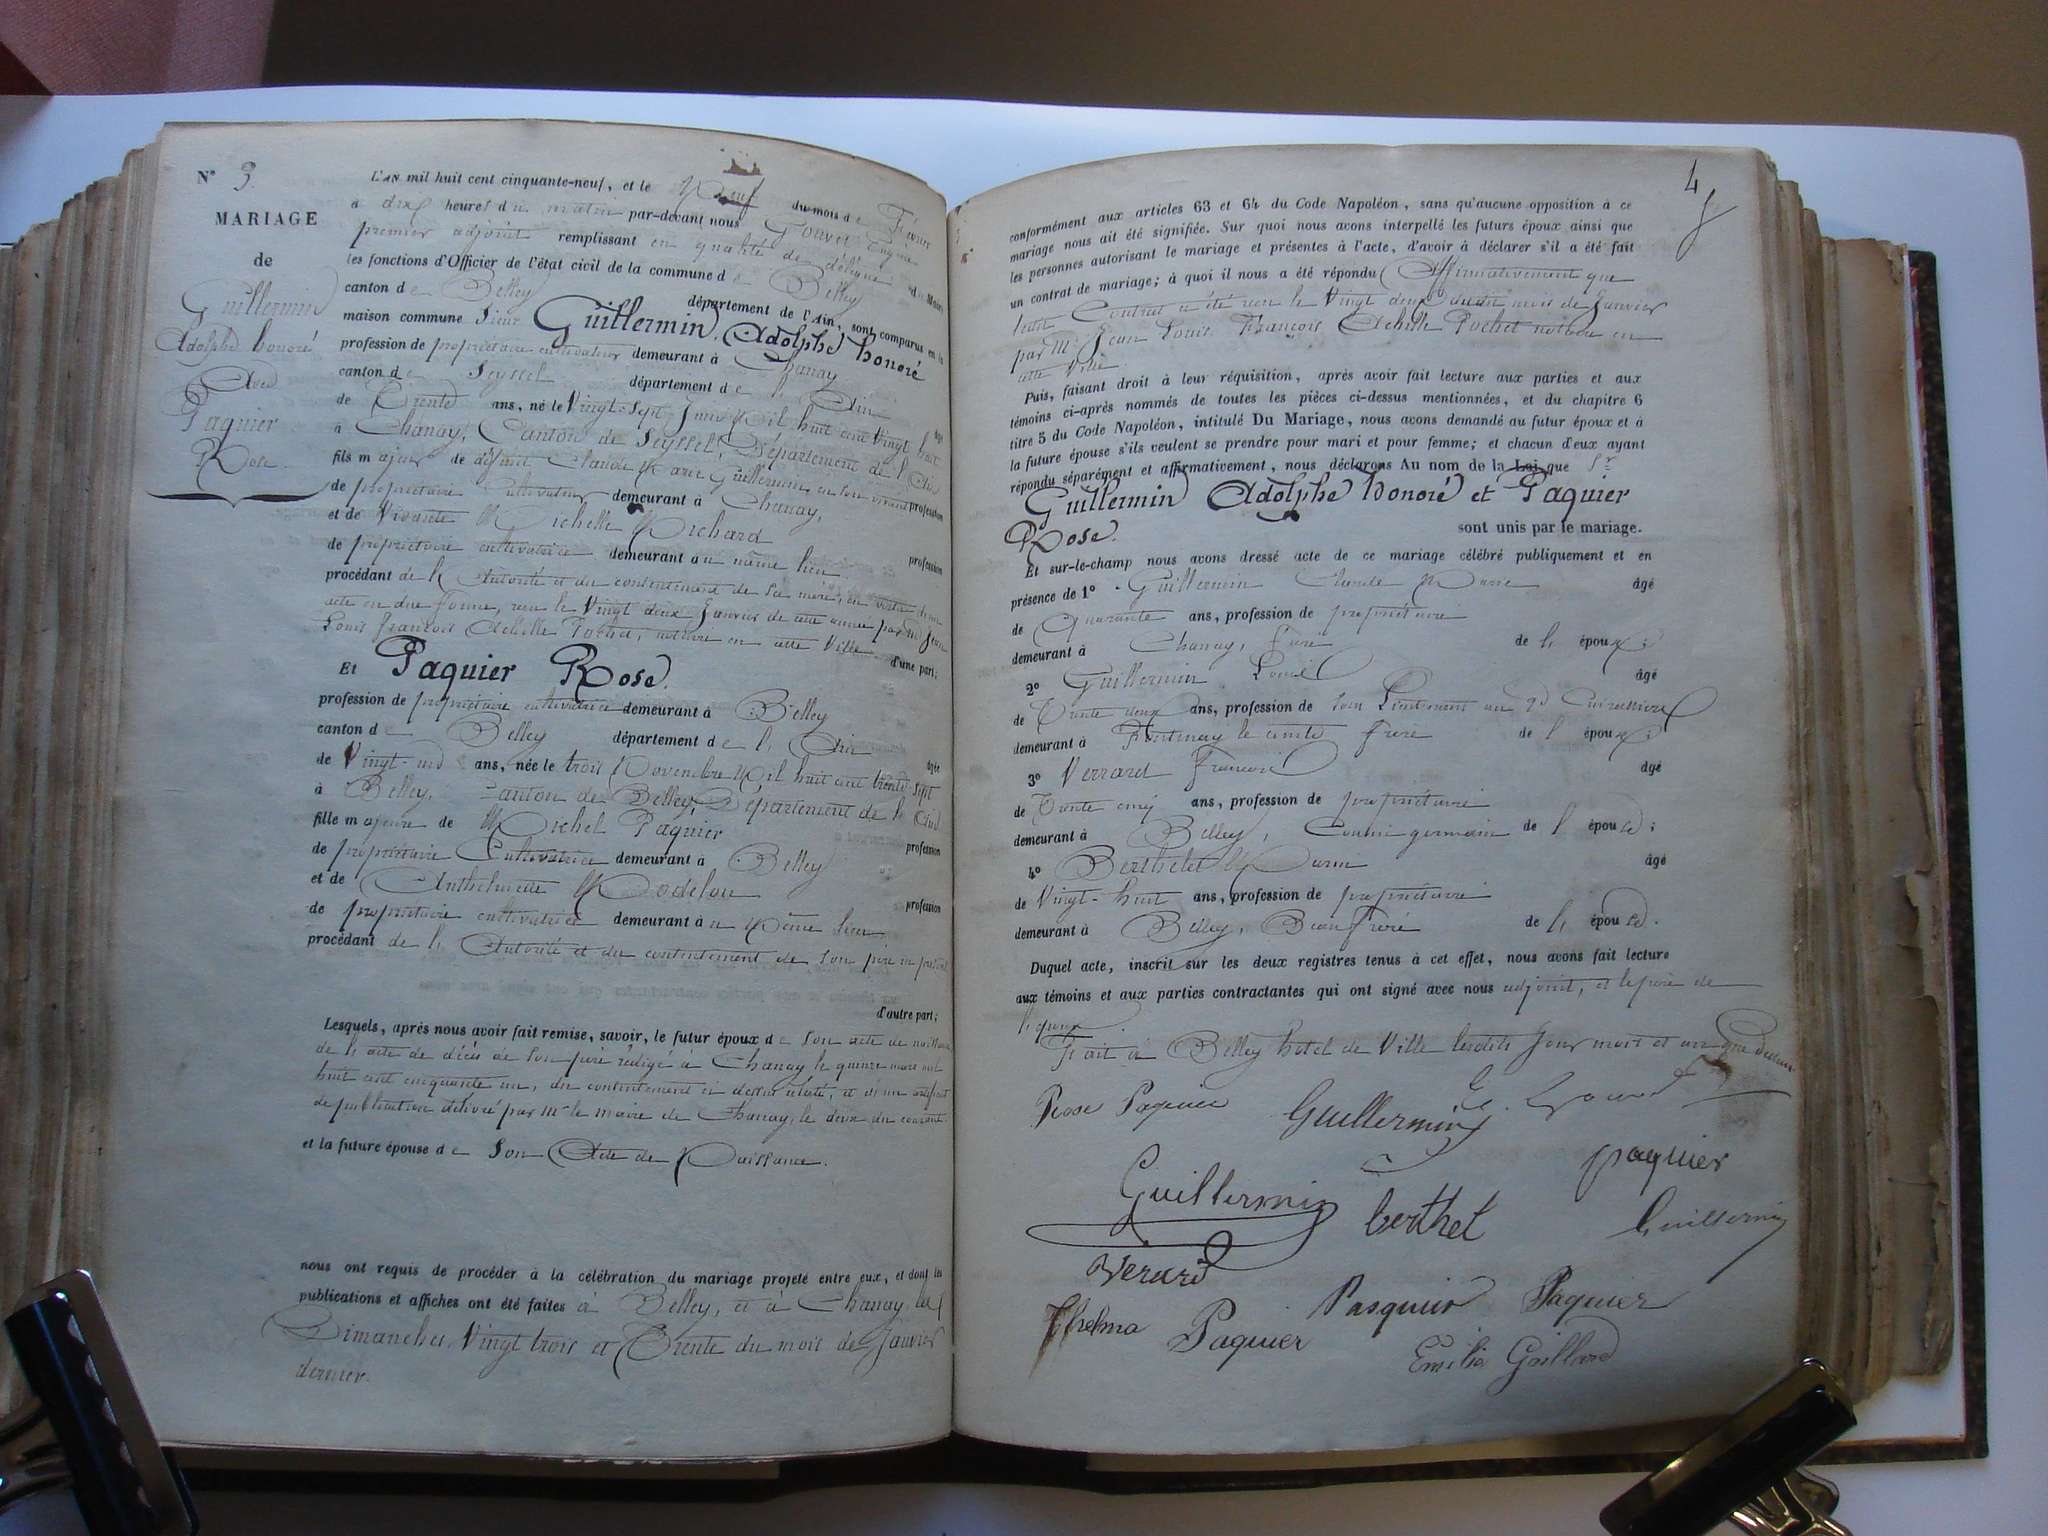 N° 3.
MARIAGE
de
Guillermin
Adolphe honoré
Avec
Paquier
Rose.
L'AN mil huit cent cinquante-neuf, et le Neuf du mois de Février
à dix heures du matin par-devant nous Gouvet
premier adjoint remplissant en qualité de délégué du Maire
les fonctions d'Officier de l'état civil de la commune de Belley
canton de Belley département de l'Ain, sont comparus en la
maison commune Sieur Guillermin Adolphe honoré
profession de propriétaire cultivateur demeurant à Chanay
canton de Seyssel département de l'Ain âgé
de Trente ans, né le Vingt-Sept Juin Mil huit cent Vingt huit
à Chanay, Canton de Seyssel, Département de l'Ain
fils majeur de défunt Claude Marie Guillermin en son vivant profession
de propriétaire Cultivateur demeurant à Chanay,
et de Vivante Michelle Michard profession
de propriétaire cultivatrice demeurant au même lieu
procédant de l'Autorité et du contentement de sa mère, en vertu d'un
acte en due forme, reçu le Vingt deux Janvier de cette année par Me Jean
Louis françois Achille Pochet, notaire en cette Ville d'une part;
Et Paquier Rose.
profession de propriétaire cultivatrice demeurant à Belley
canton de Belley département de l'Ain âgée
de Vingt-un ans, née le trois Novembre Mil huit cent trente Sept
à Belley, Canton de Belley, Département de l'Ain
fille majeure de Michel Paquier profession
de propriétaire Cultivatrice demeurant à Belley
et de Anthelmette Modelon profession
de propriétaire cultivatrice demeurant au Même lieu
procédant de l'Autorité et du contentement de son père ici présent
d'autre part;
Lesquels, après nous avoir fait remise, savoir, le futur époux de Son acte de naissance
de l'acte de décès de Son père rédigé à Chanay le quinze mars mil
huit cent cinquante un, du contentement ci dessus relaté, et d'un certificat
de publication délivré par Mr le maire de Chanay, le deux du courant
et la future épouse de Son Acte de Naissance.
nous ont requis de procéder à la célébration du mariage projeté entre eux, et dont les
publications et affiches ont été faites à Belley, et à Chanay les
Dimanches Vingt trois et Trente du mois de Janvier
dernier.
4
conformément aux articles 63 et 64 du Code Napoléon, sans qu'aucune opposition à ce
mariage nous ait été signifiée. Sur quoi nous avons interpellé les futurs époux ainsi que
les personnes autorisant le mariage et présentes à l'acte, d'avoir à déclarer s'il a été fait
un contrat de mariage; à quoi il nous a été répondu Affirmativement que
ledit Contrat a été reçu le Vingt deux dudit mois de Janvier
par Me Jean Louis François Achille Pochet notaire en
cette Ville.
Puis, faisant droit à leur réquisition, après avoir fait lecture aux parties et aux
témoins ci-après nommés de toutes les pièces ci-dessus mentionnées, et du chapitre 6
titre 5 du Code Napoléon, intitulé Du Mariage, nous avons demandé au futur époux et à
la future épouse s'ils veulent se prendre pour mari et pour femme; et chacun d'eux ayant
répondu séparément et affirmativement, nous déclarons Au nom de la Loi que Sr
Guillermin Adolphe honoré et Paquier
Rose. sont unis par le mariage.
Et sur-le-champ nous avons dressé acte de ce mariage célébré publiquement et en
présence de 1° Guillermin Claude Marie âgé
de Quarante ans, profession de propriétaire
demeurant à Chanay, frère de l'époux;
2° Guillermin Louis âgé
de Trente deux ans, profession de Sous Lieutenant au 9e Cuirassiers
demeurant à Fontenay le comte frère de l'époux;
3° Verrard François âgé
de Trente cinq ans, profession de propriétaire
demeurant à Belley, Cousin germain de l'épouse;
4° Berthelet Marin âgé
de Vingt-huit ans, profession de propriétaire
demeurant à Belley, Beau frère de l'épouse.
Duquel acte, inscrit sur les deux registres tenus à cet effet, nous avons fait lecture
aux témoins et aux parties contractantes qui ont signé avec nous adjoint, et le père de
l'épouse.
Fait à Belley hôtel de Ville lesdits Jour mois et an que dessus
Rose Paquier Guillermin
Guillermin berthet paquier
Guillermin
Verard
Thelma Paquier Pasquier Paquier
Emilie Gaillard